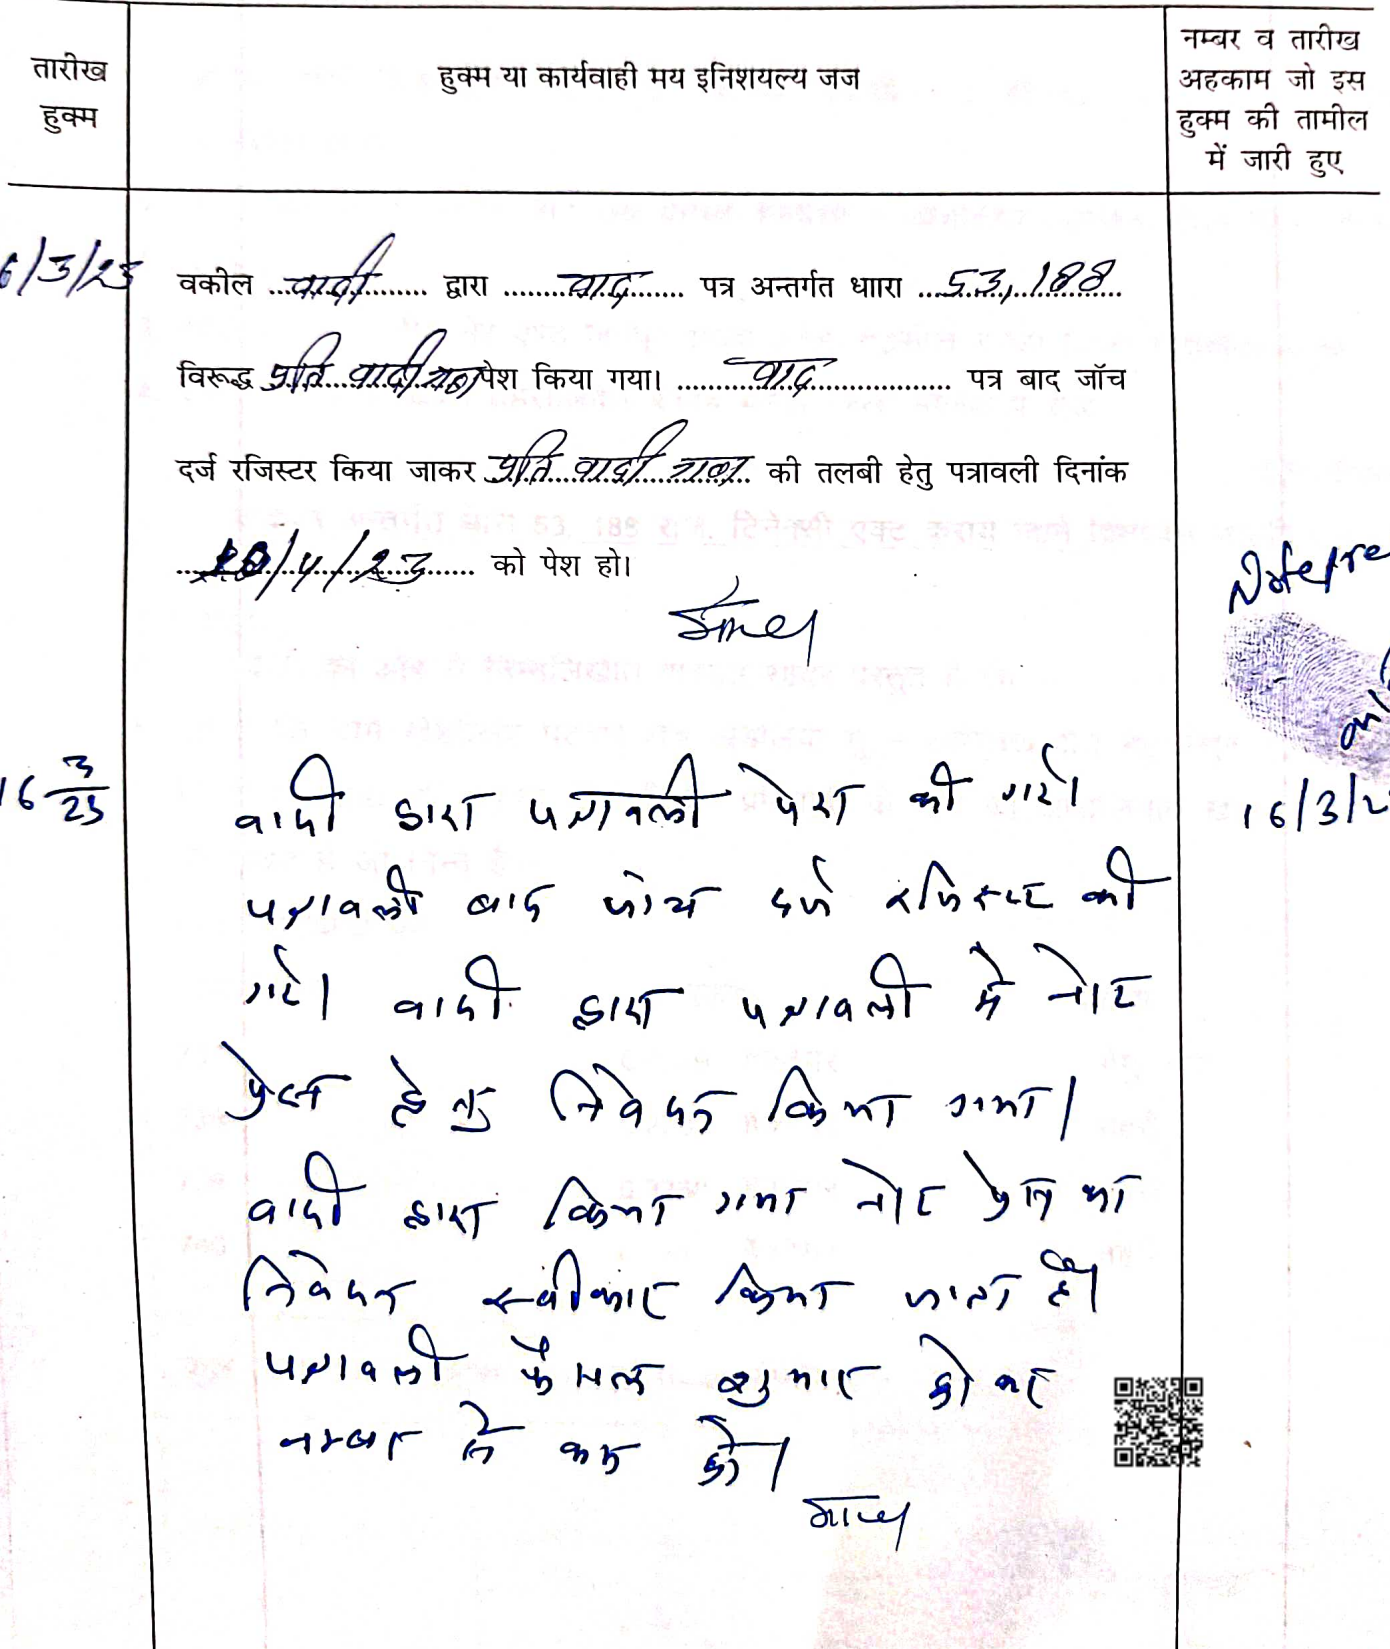 तारीख
हुक्म
हुक्म या कार्यवाही मय इनिशयल्य जज
नम्बर व तारीख
अहकाम जो इस
हुक्म की तामील
में जारी हुए
6/3/23
वकील ..वादी.. द्वारा ..वाद.. पत्र अन्तर्गत धाारा ..53,188..
विरूद्ध प्रति वादी गण पेश किया गया। ..वाद.. पत्र बाद जॉच
दर्ज रजिस्टर किया जाकर प्रति वादी गण की तलबी हेतु पत्रावली दिनांक
/4/23 को पेश हो।
Notepre
16 3/23
वादी द्वारा पत्रावली पेश की गई।
पत्रावली बाद जांच दर्ज रजिस्टर की
गई। वादी द्वारा पत्रावली में नोट
प्रेस हेतु निवेदन किया गया।
वादी द्वारा किया गया नोट प्रेस का
निवेदन स्वीकार किया जाता है।
पत्रावली फैसल शुमार होकर
नम्बर से कम हो।
16/3/2